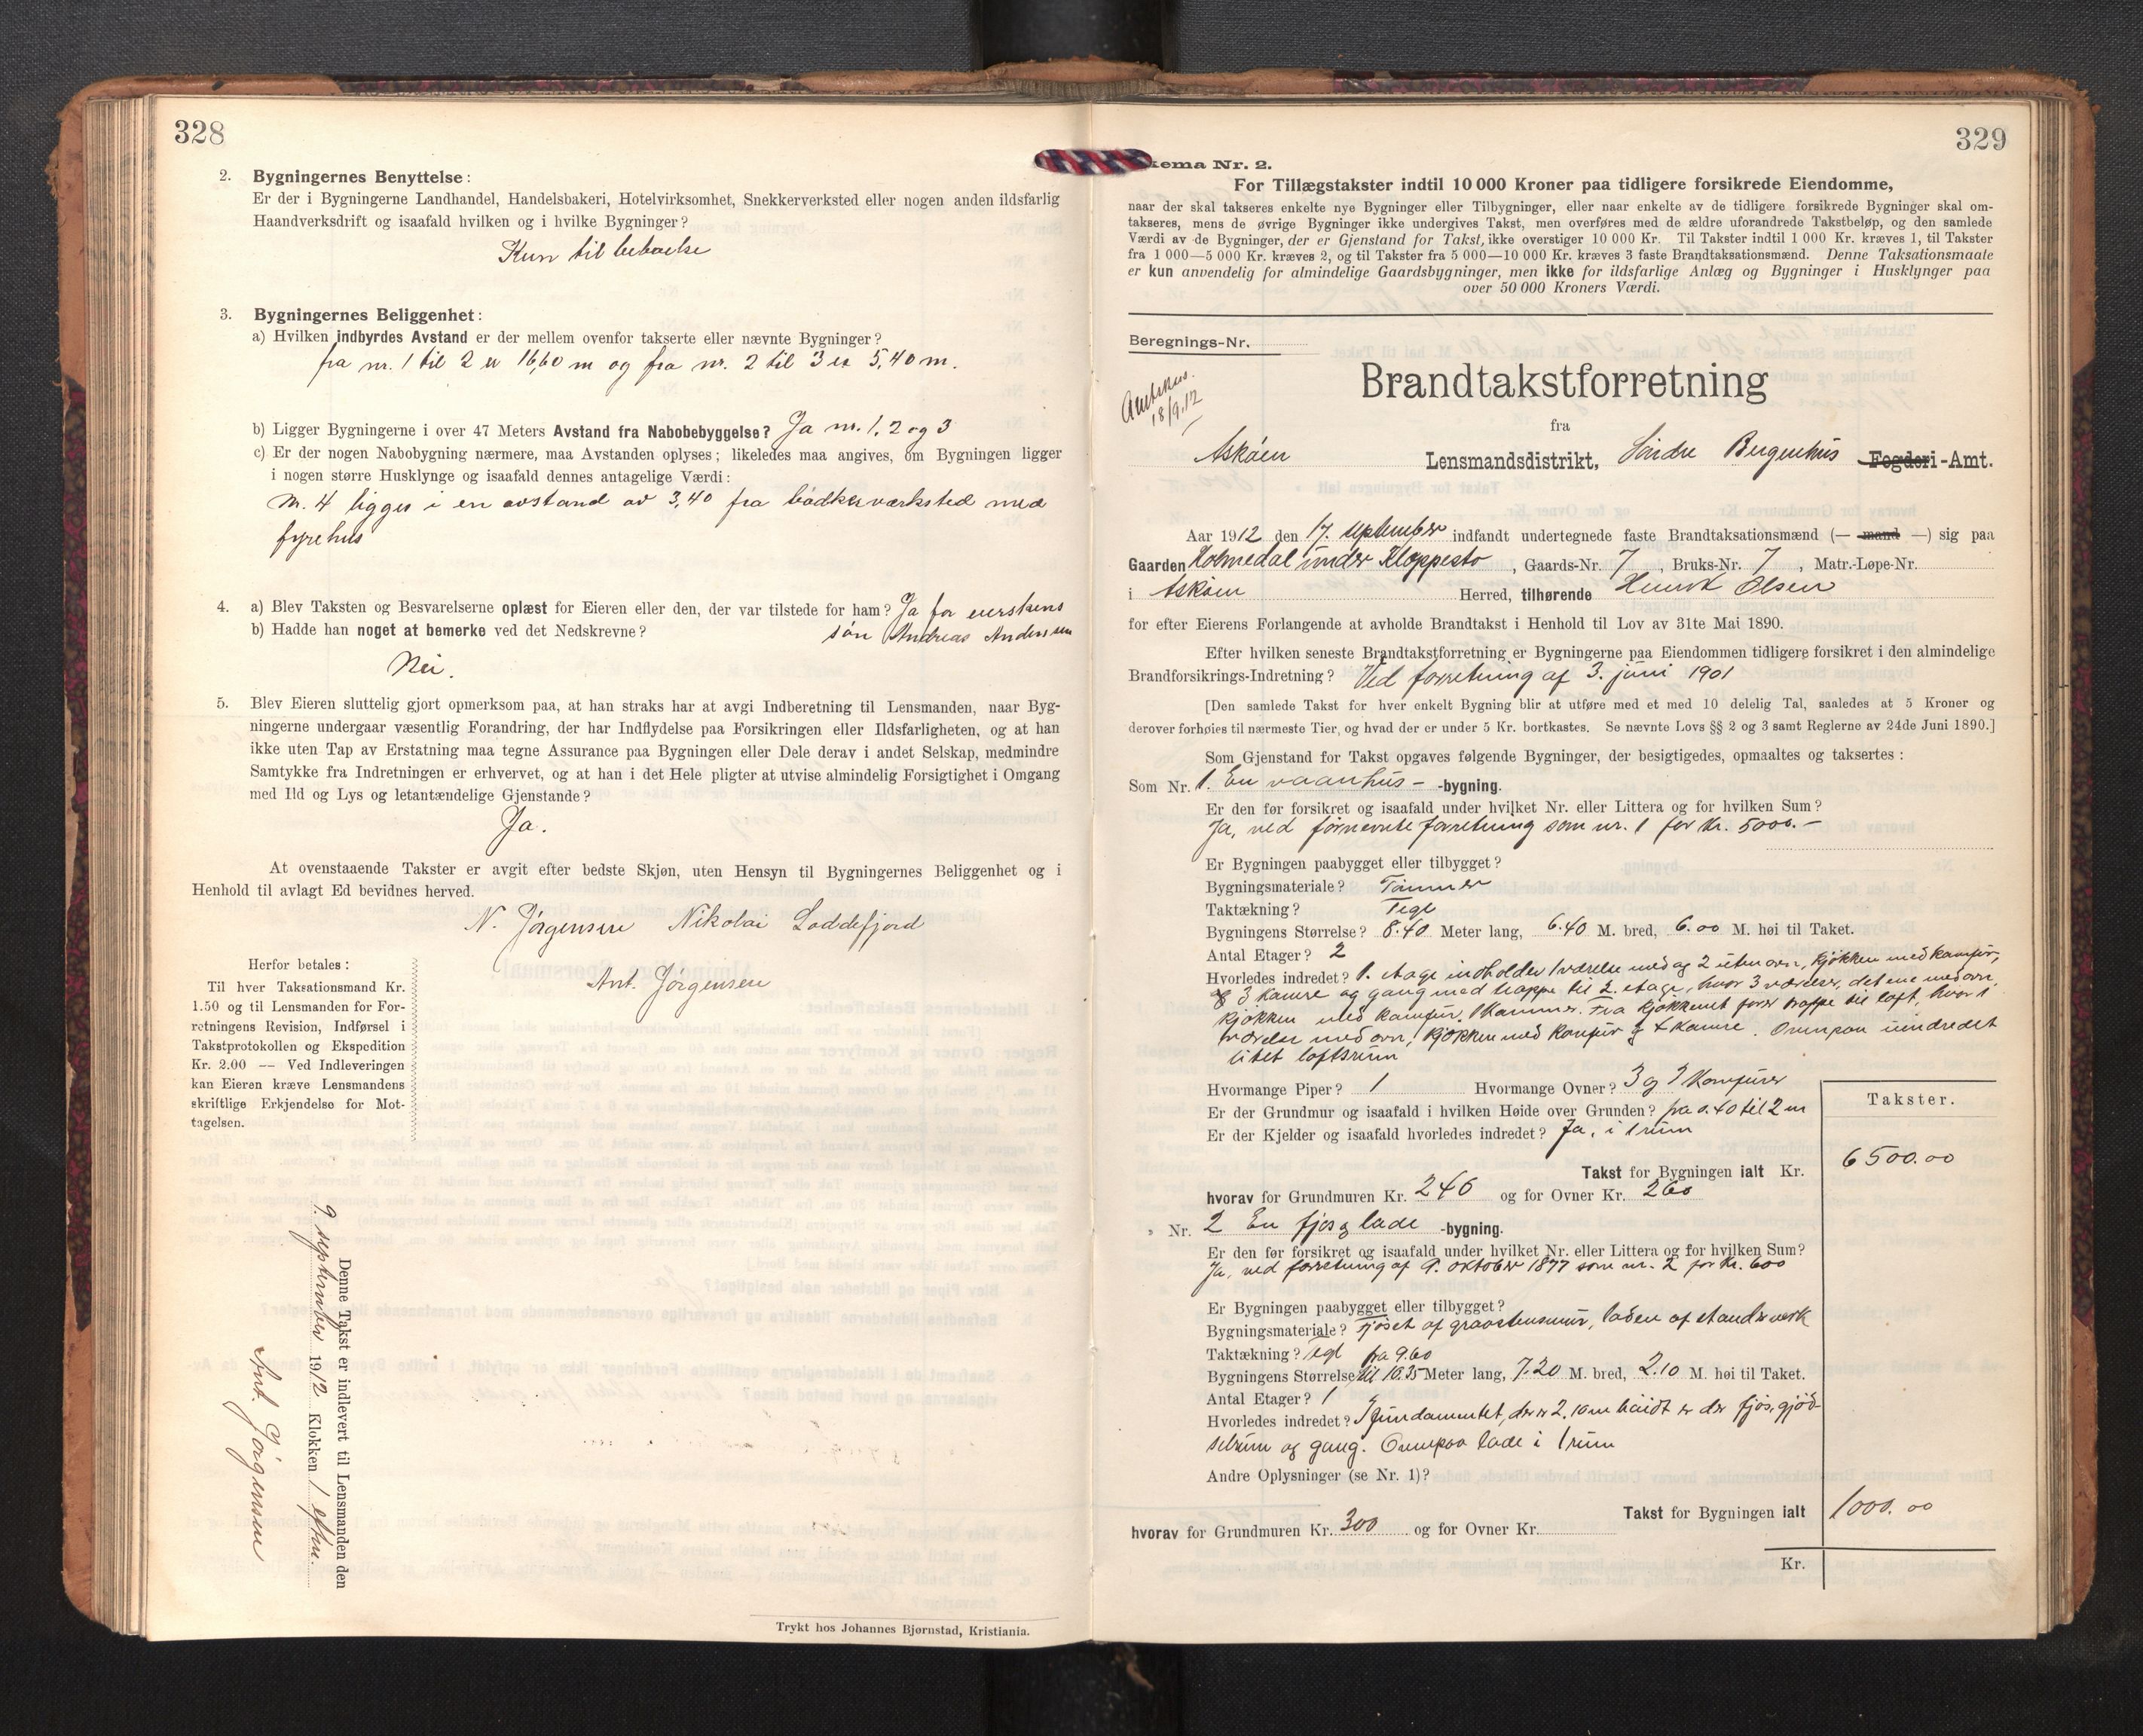 328
2. Bygningernes Benyttelse:
Er der i Bygningerne Landhandel, Handelsbakeri, Hotelvirksomhet, Snekkerverksted eller nogen anden ildsfarlig
Haandverksdrift og isaafald hvilken og i hvilke Bygninger?
Kun til beboelse
3. Bygningernes Beliggenhet:
a) Hvilken indbyrdes Avstand er der mellem ovenfor takserte eller nævnte Bygninger?
fra nr. 1 til 2 er 16,60 m og fra nr. 2 til 3 er 5,40 m.
b) Ligger Bygningerne i over 47 Meters Avstand fra Nabobebyggelse? Ja nr. 1, 2 og 3
c) Er der nogen Nabobygning nærmere, maa Avstanden oplyses; likeledes maa angives, om Bygningen ligger
i nogen større Husklynge og isaafald dennes antagelige Værdi:
Nr. 4 ligger i en avstand av 3,40 fra bödkerværksted med
fyrehus
4. a) Blev Taksten og Besvarelserne oplæst for Eieren eller den, der var tilstede for ham? Ja for eierskens
b) Hadde han noget at bemerke ved det Nedskrevne? sön Andreas Andersen
Nei.
5. Blev Eieren sluttelig gjort opmerksom paa, at han straks har at avgi Indberetning til Lensmanden, naar Byg-
ningerne undergaar væsentlig Forandring, der har Indflydelse paa Forsikringen eller Ildsfarligheten, og at han
ikke uten Tap av Erstatning maa tegne Assurance paa Bygningen eller Dele derav i andet Selskap, medmindre
Samtykke fra Indretningen er erhvervet, og at han i det Hele pligter at utvise almindelig Forsigtighet i Omgang
med Ild og Lys og letantændelige Gjenstande?
Ja.
At ovenstaaende Takster er avgit efter bedste Skjøn, uten Hensyn til Bygningernes Beliggenhet og i
Henhold til avlagt Ed bevidnes herved.
N. Jörgensen Nikolai Loddefjord
Ant. Jörgensen
Herfor betales:
Til hver Taksationsmand Kr.
1.50 og til Lensmanden for For-
retningens Revision, Indførsel i
Takstprotokollen og Ekspedition
Kr. 2.00 — Ved Indleveringen
kan Eieren kræve Lensmandens
skriftlige Erkjendelse for Mot-
tagelsen.
Denne Takst er indlevert til Lensmanden den
9. september 1912 Klokken 1 efterm.
Ant. Jörgensen
Trykt hos Johannes Bjørnstad, Kristiania.
329
kema Nr. 2.
For Tillægstakster indtil 10 000 Kroner paa tidligere forsikrede Eiendomme,
naar der skal takseres enkelte nye Bygninger eller Tilbygninger, eller naar enkelte av de tidligere forsikrede Bygninger skal om-
takseres, mens de øvrige Bygninger ikke undergives Takst, men overføres med de ældre uforandrede Takstbeløp, og den samlede
Værdi av de Bygninger, der er Gjenstand for Takst, ikke overstiger 10 000 Kr. Til Takster indtil 1 000 Kr. kræves 1, til Takster
fra 1 000—5 000 Kr. kræves 2, og til Takster fra 5 000—10 000 Kr. kræves 3 faste Brandtaksationsmænd. Denne Taksationsmaate
er kun anvendelig for almindelige Gaardsbygninger, men ikke for ildsfarlige Anlæg og Bygninger i Husklynger paa
over 50 000 Kroners Værdi.
Beregnings-Nr.
18/9.12
Brandtakstforretning
fra
Asköen Lensmandsdistrikt, Söndre Bergenhus Fogderi-Amt.
Aar 1912 den 17. september indfandt undertegnede faste Brandtaksationsmænd (— mand —) sig paa
Gaarden Holmedal under Kleppestö, Gaards-Nr. 7, Bruks-Nr. 7, Matr.-Løpe-Nr.
i Asköen Herred, tilhørende Henrik Olsen
for efter Eierens Forlangende at avholde Brandtakst i Henhold til Lov av 31te Mai 1890.
Efter hvilken seneste Brandtakstforretning er Bygningerne paa Eiendommen tidligere forsikret i den almindelige
Brandforsikrings-Indretning? Ved forretning af 3. juni 1901
[Den samlede Takst for hver enkelt Bygning blir at utføre med et med 10 delelig Tal, saaledes at 5 Kroner og
derover forhøies til nærmeste Tier, og hvad der er under 5 Kr. bortkastes. Se nævnte Lovs §§ 2 og 3 samt Reglerne av 24de Juni 1890.]
Som Gjenstand for Takst opgaves følgende Bygninger, der besigtigedes, opmaaltes og taksertes:
Som Nr. 1. En vaanhus- -bygning.
Er den før forsikret og isaafald under hvilket Nr. eller Littera og for hvilken Sum?
Ja, ved førnevnte forretning som nr. 1 for Kr. 5000.-
Er Bygningen paabygget eller tilbygget?
Bygningsmateriale? Tömmer
Taktækning? Tegl
Bygningens Størrelse? 8.40 Meter lang, 6.40 M. bred, 6.00 M. høi til Taket.
Antal Etager? 2
Hvorledes indredet? 1. etage indholder 1 værelse med og 2 uten ovn, kjökken med komfur,
3 kamre og gang med trappe til 2. etage, hvor 3 værelser, det ene med ovn,
kjökken med komfur, 1 kammer. Fra kjökkenet förer trappe til loft, hvor 1
værelse med ovn, kjökken med komfur og 4 kamre. Ovenpaa uindredet
litet loftsrum
Hvormange Piper? 1 Hvormange Ovner? 3 og 3 komfurer
Er der Grundmur og isaafald i hvilken Høide over Grunden? fra 0.40 til 2 m
Er der Kjelder og isaafald hvorledes indredet? Ja, i 1 rum
Takster.
Takst for Bygningen ialt Kr. 6500.00
hvorav for Grundmuren Kr. 246 og for Ovner Kr. 260
» Nr. 2 En fjös og lade -bygning.
Er den før forsikret og isaafald under hvilket Nr. eller Littera og for hvilken Sum?
Ja, ved forretning af 9. oktober 1877 som nr. 2 for Kr. 600
Er Bygningen paabygget eller tilbygget?
Bygningsmateriale? Fjöset af graastensmur, laden af standerverk
Taktækning? Tegl fra 9.60
Bygningens Størrelse til 10.35 Meter lang, 7.20 M. bred, 2.10 M. høi til Taket.
Antal Etager? 1
Hvorledes indredet? I fundamentet, der er 2.10 m höidt er der fjös, gjöd-
selrum og gang. Ovenpaa lade i 1 rum
Andre Oplysninger (se Nr. 1)?
Takst for Bygningen ialt 1000.00
hvorav for Grundmuren Kr. 300 og for Ovner Kr.
Kr.